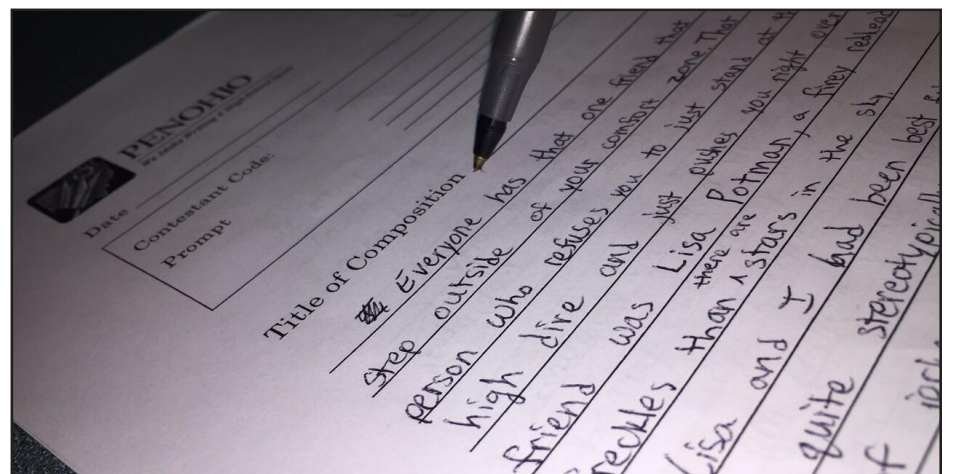 PENOHIO
Date
Contestant Code:
Prompt
Title of Composition
Everyone has that one friend that
step outside of your comfort zone. That
person who refuses you to just stand at
high dive and just pushes you right over
friend was Lisa Potman, a firey redhead
there are
reckles than ^ stars in the sky.
Lisa and I had been best
quite stereotypically
f